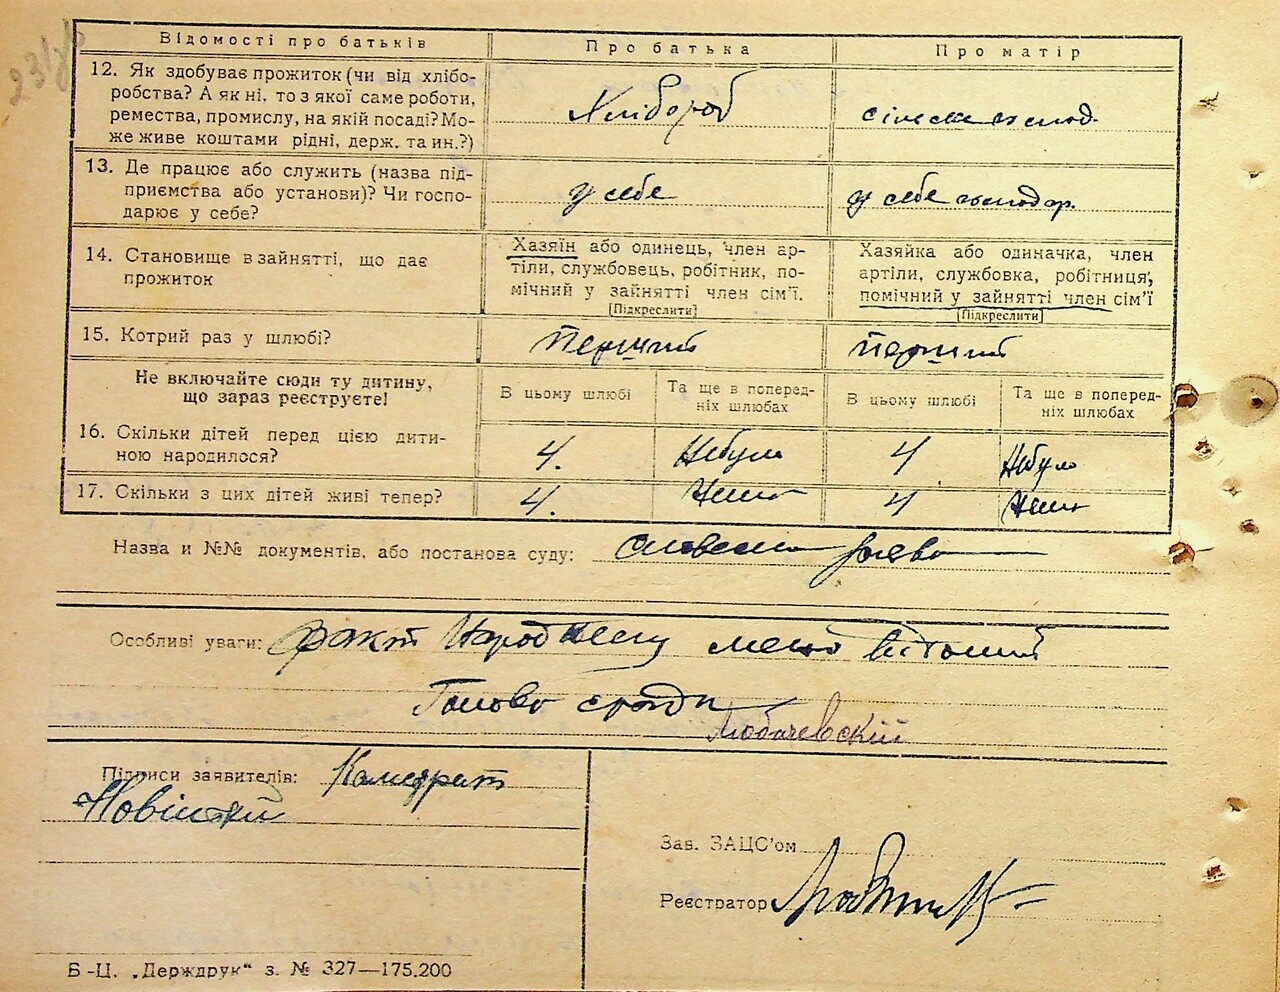 Відомості про батьків Про батька Про матір
12. Як здобуває прожиток (чи від хлібо-
робства? А як ні, то з якої саме роботи,
ремества, промислу, на якій посаді? Мо-
же живе коштами рідні, держ. та ин.?)
Хлібороб
13. Де працює або служить (назва під-
приємства або установи)? Чи госпо-
дарює у себе?
у себе у себе господар.
14. Становище в зайнятті, що дає
прожиток
Хазяїн або одинець, член ар-
тіли, службовець, робітник, по-
мічний у зайнятті член сім'ї.
[Підкреслити]
Хазяйка або одиначка, член
артіли, службовка, робітниця,
помічний у зайнятті член сім'ї
[Підкреслити]
15. Котрий раз у шлюбі? Перший Перший
Не включайте сюди ту дитину,
що зараз реєструєте!
В цьому шлюбі
Та ще в поперед-
ніх шлюбах
В цьому шлюбі
Та ще в поперед-
ніх шлюбах
16. Скільки дітей перед цією дити-
ною народилося?
4. Небуло 4 Небуло
17. Скільки з цих дітей живі тепер? 4. Нема 4 Нема
Назва и №№ документів, або постанова суду:
Особливі уваги: факт мені відомий
Голова сради
Любачевскій
Підписи заявителів: Камедрат
Зав. ЗАЦС'ом
Реєстратор
Б-Ц. „Держдрук“ з. № 327—175.200